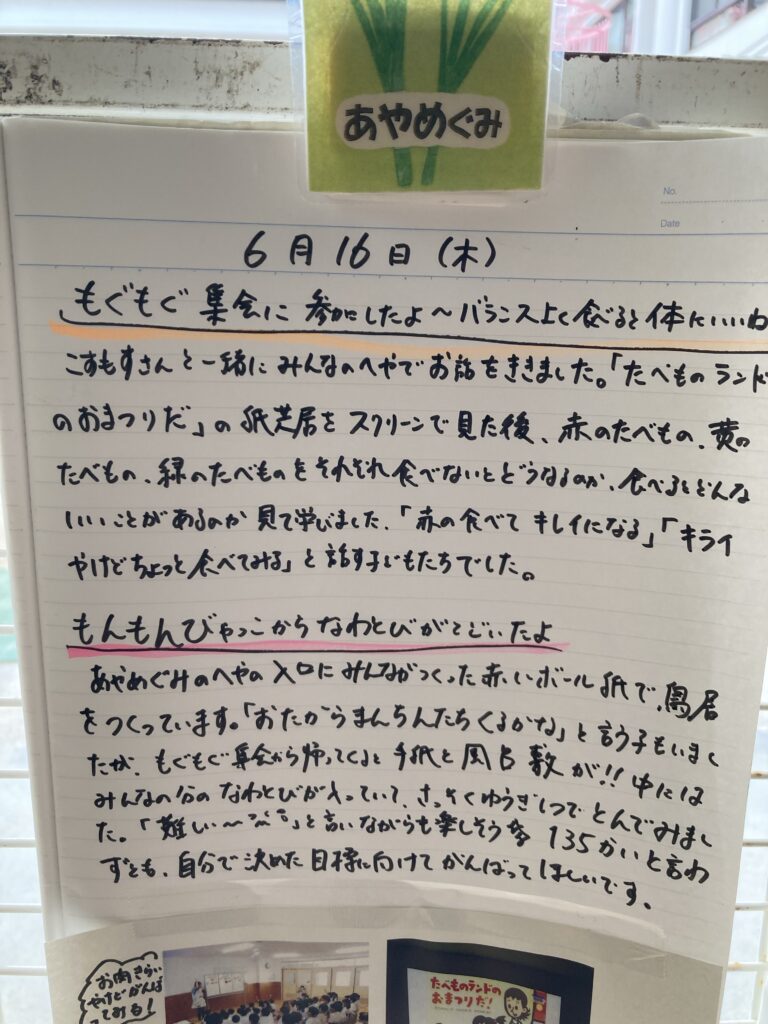 あやめぐみ
No.
Date
6月16日(木)
もぐもぐ集会に参加したよ〜バランス上く食べると体にいいね
こすもすさんと一緒にみんなのへやでお話をききました。「たべものランド
のおまつりだ」の紙芝居をスクリーンで見た後、赤のたべもの、黄の
たべもの、緑のたべものをそれぞれ食べないとどうなるのか、食べるとどんな
いいことがあるのか見て学びました。「赤の食べてキレイになる」「キライ
やけどちょっと食べてみる」と話す子どもたちでした。
もんもんびゃっこからなわとびがとどいたよ
あやめぐみのへやの入口にみんながつくった赤いボール紙で、鳥居
をつくっています。「おたからまんちんたちくるかな」と言う子もいまし
たが、もぐもぐ集会から帰ってくると手紙と風呂敷が!!中には
みんなの分のなわとびが入っていて、さっそくゆうぎしつでとんでみまし
た。「難しい〜」と言いながらも楽しそう 135かいと言わ
ずとも、自分で決めた目標に向けてがんばってほしいです。
お肉きらい
やけどがんば
てみる!
たべものランドの
おまつりだ!